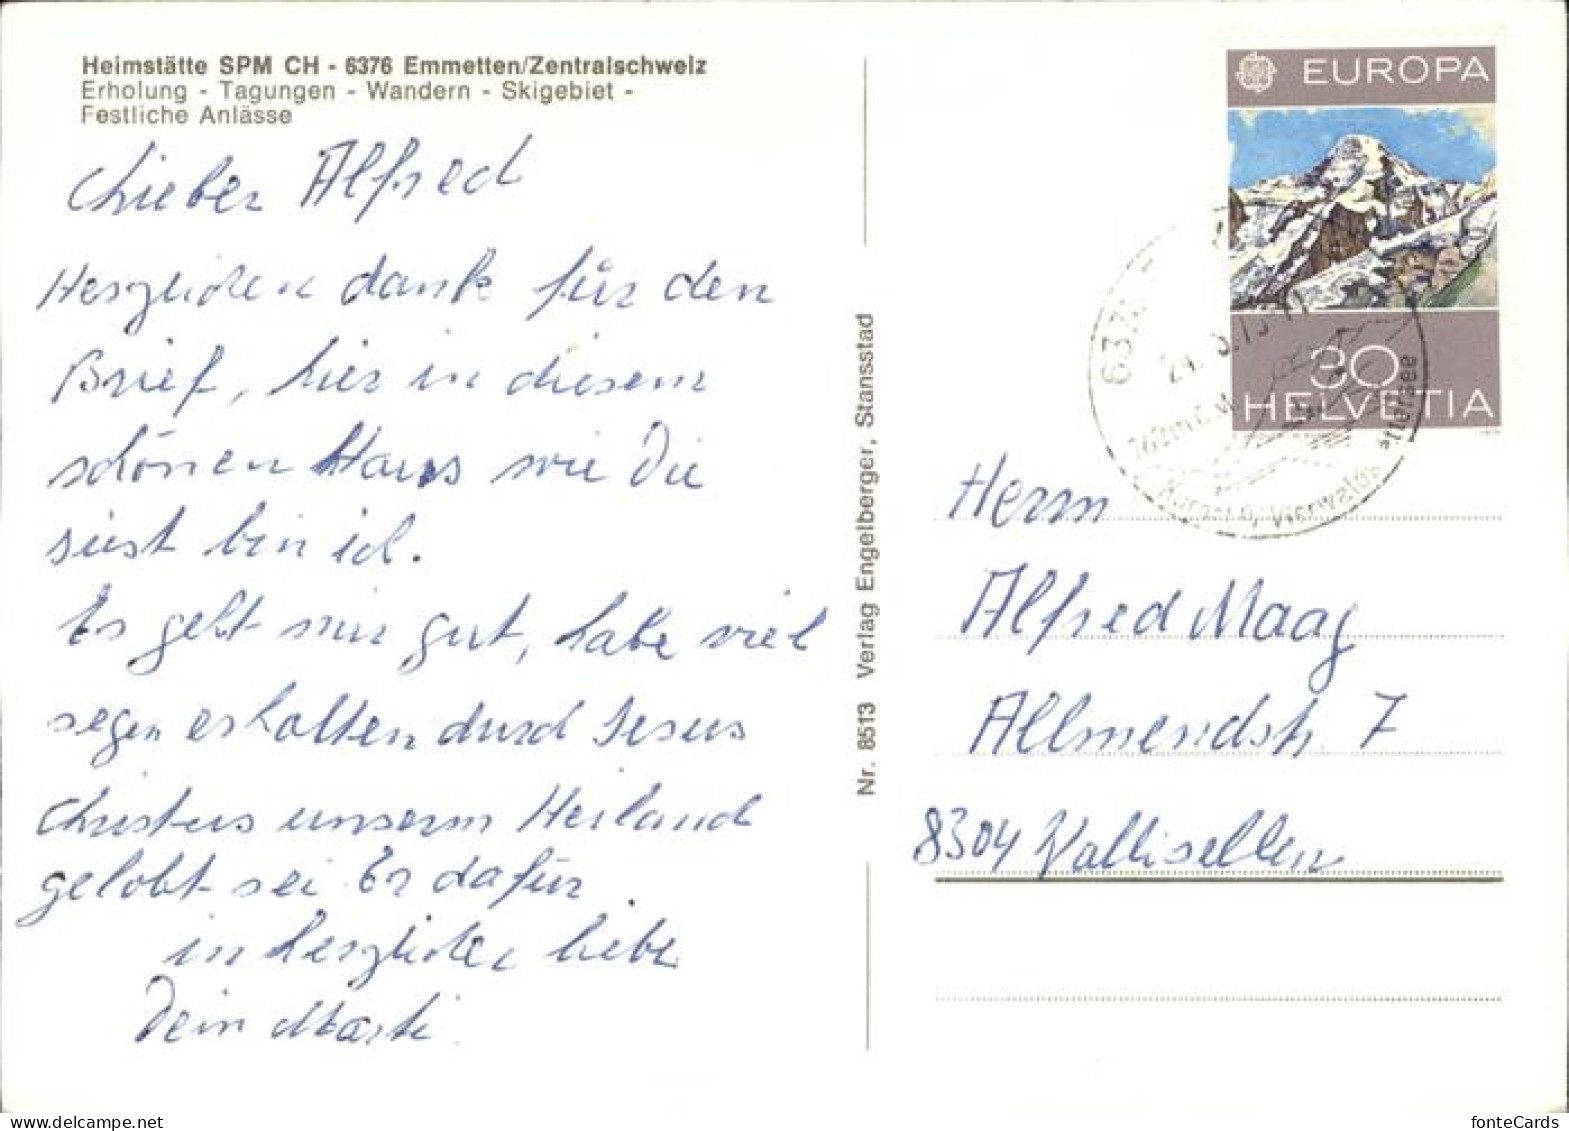 Heimstätte SPM CH - 6376 Emmetten/Zentralschweiz
Erholung - Tagungen - Wandern - Skigebiet -
Festliche Anlässe
Lieber Alfred
Herzlichen dank für den
Brief, hier in diesem
schönen Haus wie Du
siest bin ich.
Es geht mir gut, habe viel
segen erhalten durch Jesus
Christus unserm Heiland
gelobt sei Er dafür
in herzlicher liebe
Dein
Nr. 8513 Verlag Engelberger, Stansstad
EUROPA
30
HELVETIA
Herrn
Alfred Maag
Allmendstr. 7
8304 Wallisellen
fonteCards